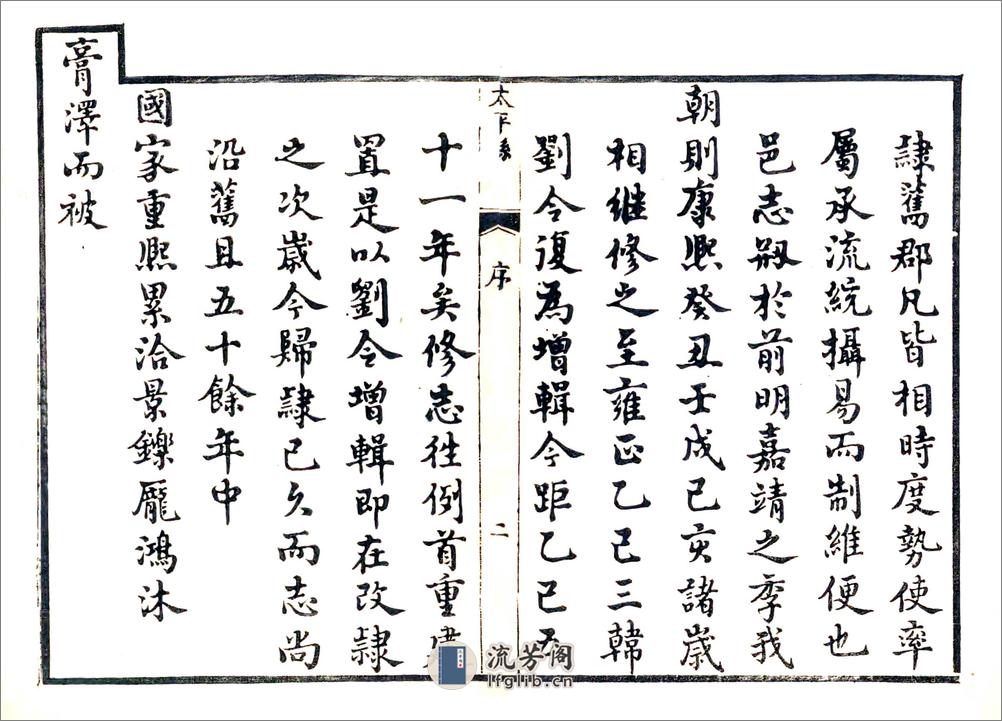 隸舊郡凡皆相時度勢使率
屬承流統攝易而制維便也
邑志剏於前明嘉靖之季我
朝則康熙癸丑壬戌己亥諸歲
相繼修之至雍正乙巳三韓
劉令復為增輯今距乙巳五
太平縣
序
二
十一年矣修志徃例首重建
置是以劉令增輯即在改隸
之次歲今歸隸已久而志尚
沿舊且五十餘年中
國家重熙累洽景鑠龎鴻沐
膏澤而被
流芳阁
lfglib.cn